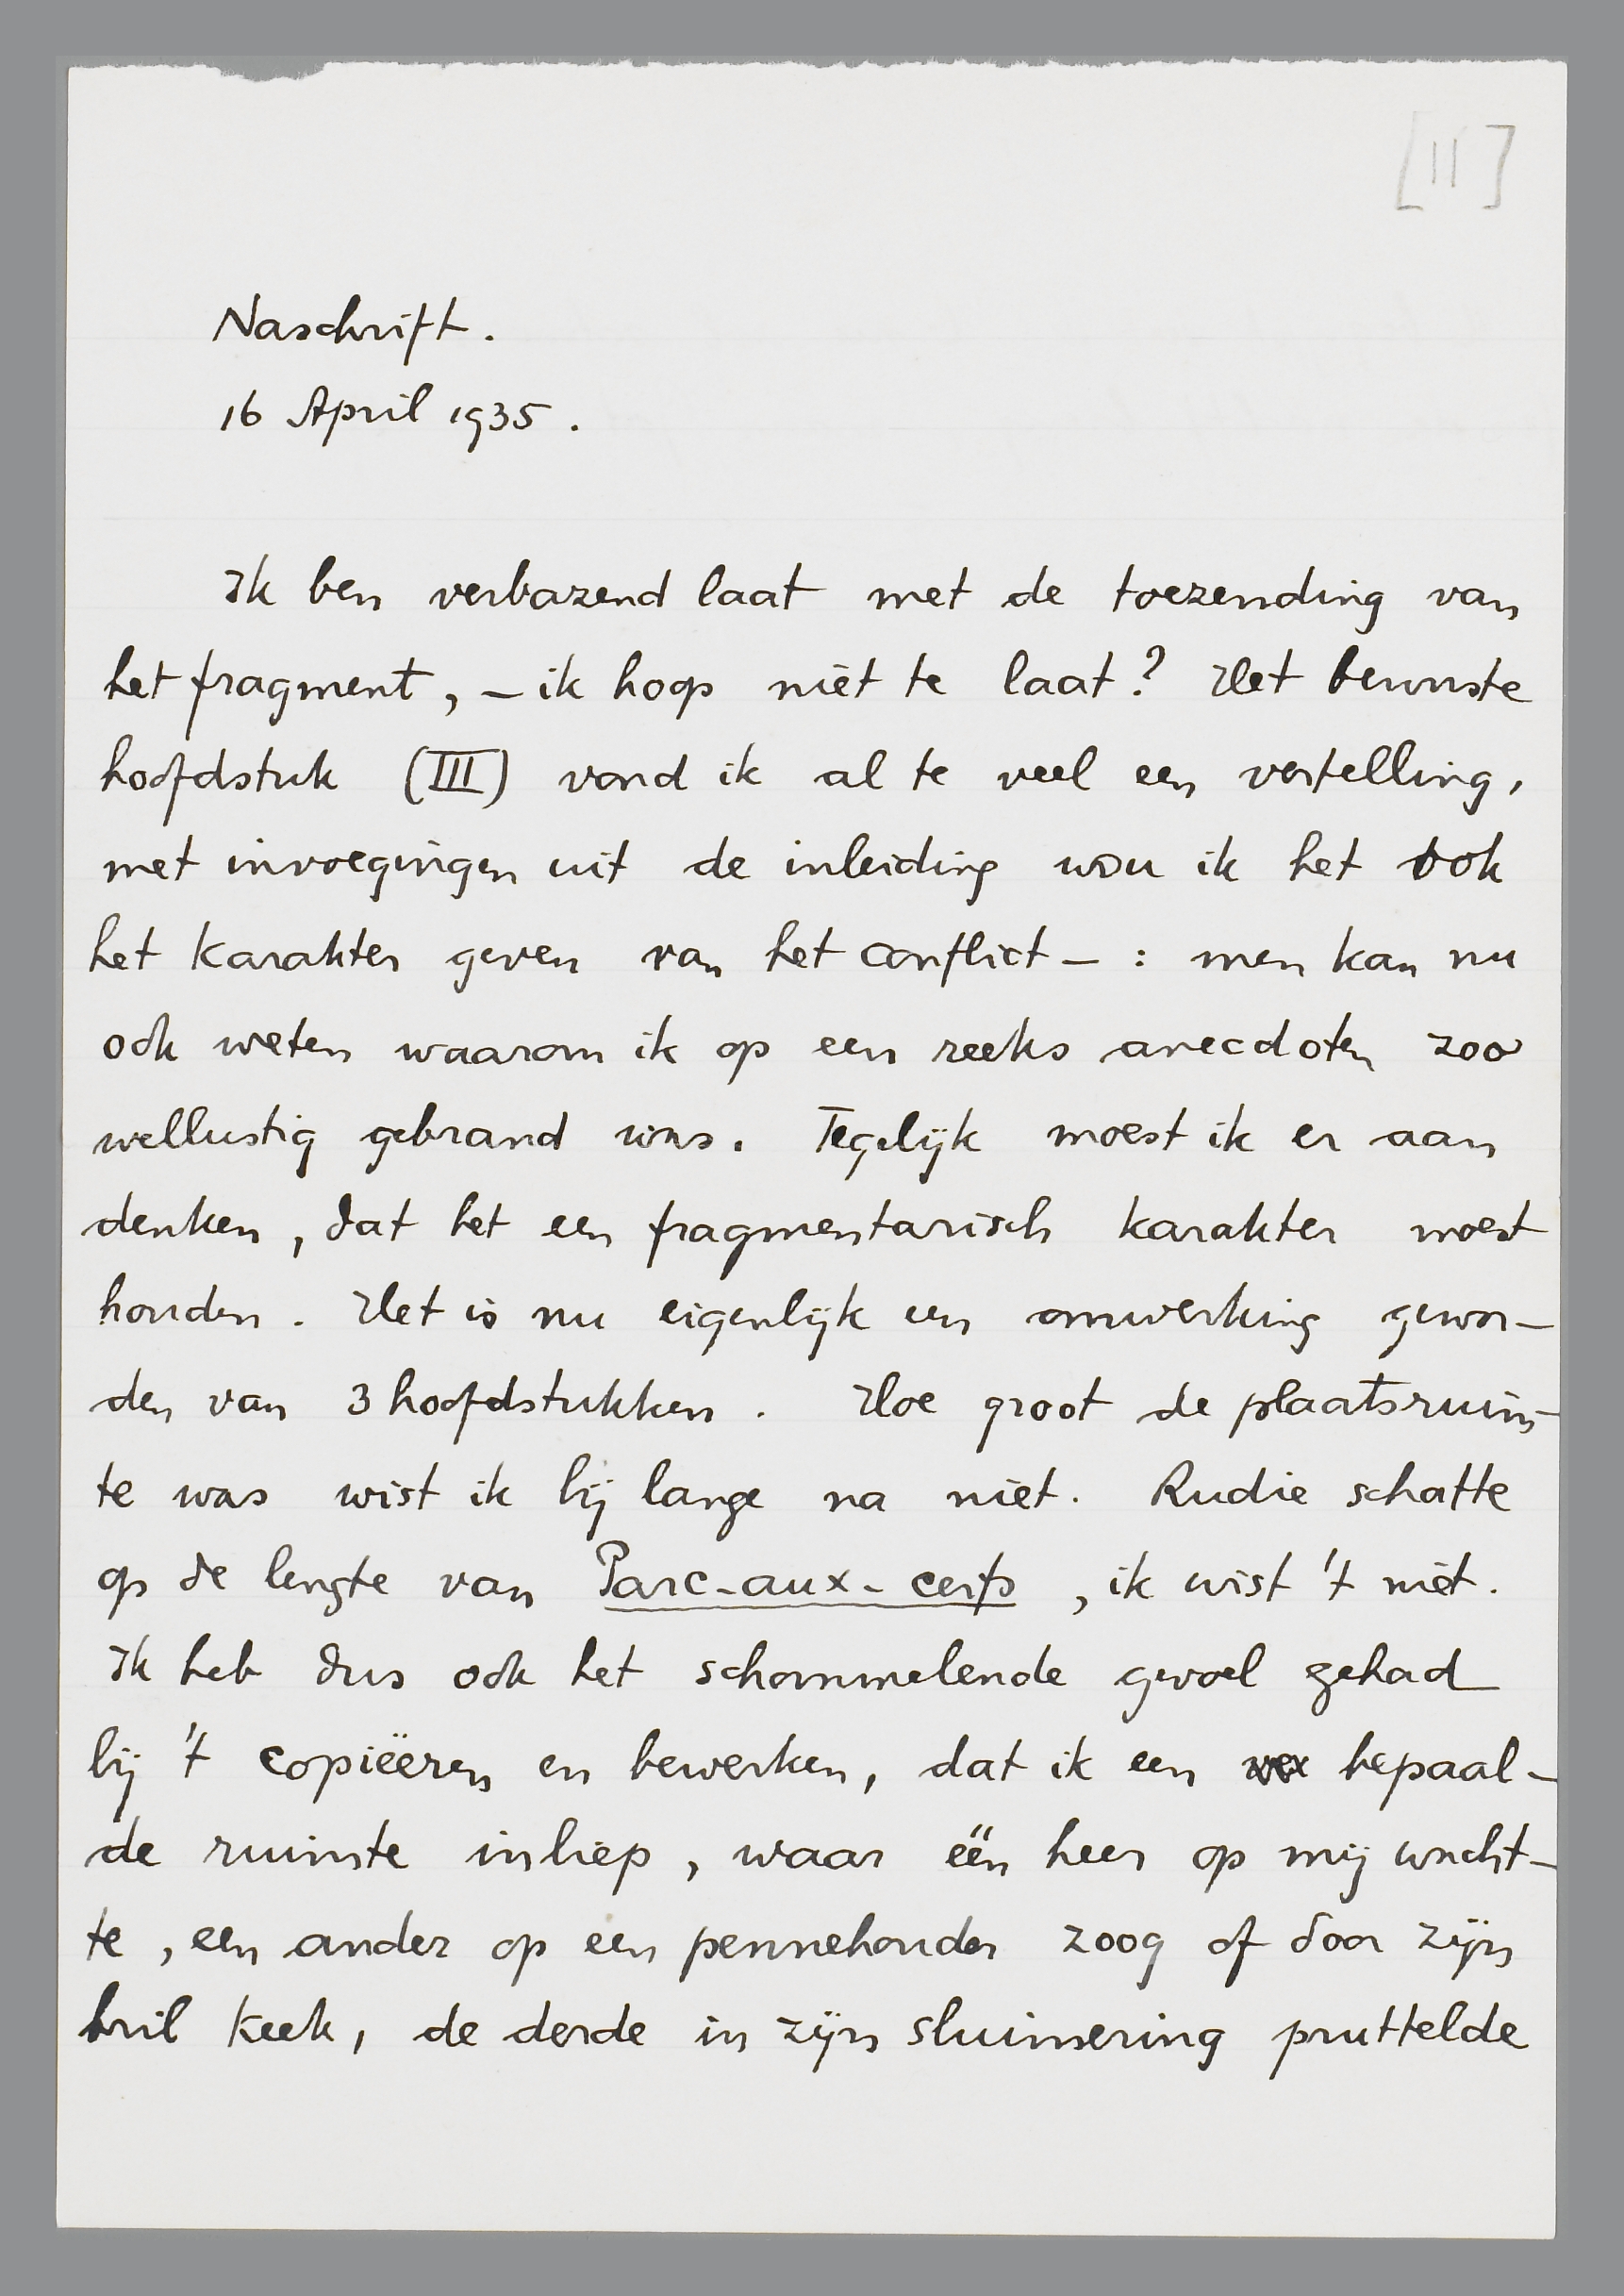 [11]
Naschrift.
16 April 1935.
Ik ben verbazend laat met de toezending van
het fragment, – ik hoop niet te laat? Het bewuste
hoofdstuk (III) vond ik al te veel een vertelling,
met invoegingen uit de inleiding wou ik het ook
het karakter geven van het conflict – : men kan nu
ook weten waarom ik op een reeks anecdoten zoo
wellustig gebrand was. Tegelijk moest ik er aan
denken, dat het een fragmentarisch karakter moest
houden. Het is nu eigenlijk een omwerking gewor-
den van 3 hoofdstukken. Hoe groot de plaatsruim-
te was wist ik bij lange na niet. Rudie schatte
op de lengte van Parc-aux-cerfs, ik wist 't niet.
Ik heb dus ook het schommelende gevoel gehad
bij 't copiëeren en bewerken, dat ik een bepaal-
de ruimte inliep, waar één heer op mij wacht-
te, een ander op een pennehouder zoog of door zijn
bril keek, de derde in zijn sluimering pruttelde